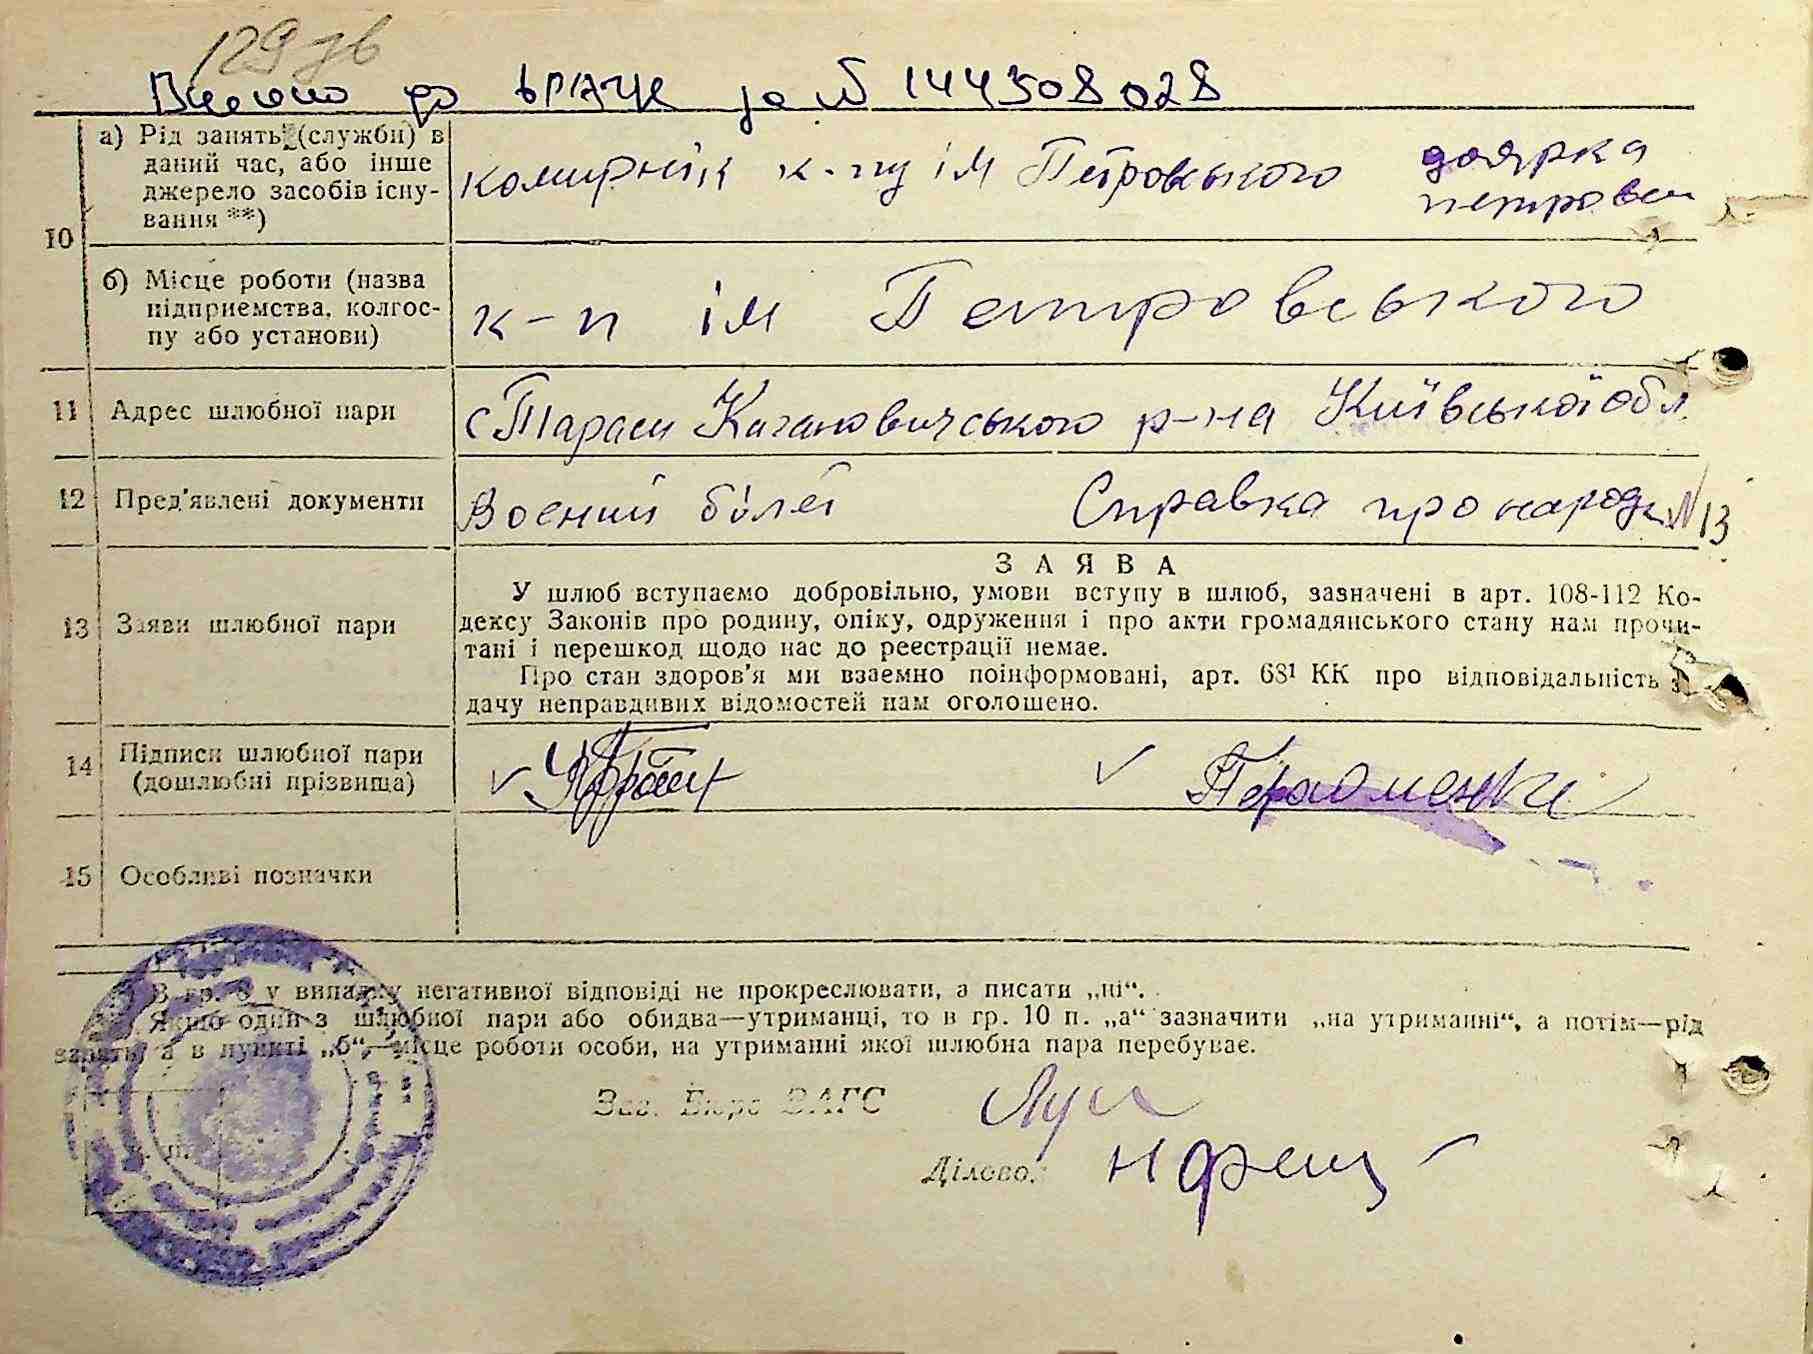 129
Внесено до ЬРАЦС за № 144308028
10
а) Рід занять (служби) в
даний час, або інше
джерело засобів існу-
вання **)
комирник к-пу ім Петровського доярка
петровсь
б) Місце роботи (назва
підприємства, колгос-
пу або установи)
к-п ім Петровського
11 Адрес шлюбної пари
с Тараси Кагановичського р-на Київської обл.
12 Пред'явлені документи
Воєний білет Справка про народж. № 13
13 Заяви шлюбної пари
ЗАЯВА
У шлюб вступаємо добровільно, умови вступу в шлюб, зазначені в арт. 108-112 Ко-
дексу Законів про родину, опіку, одруження і про акти громадянського стану нам прочи-
тані і перешкод щодо нас до реєстрації немає.
Про стан здоров'я ми взаємно поінформовані, арт. 68¹ КК про відповідальність з
дачу неправдивих відомостей нам оголошено.
14 Підписи шлюбної пари
(дошлюбні прізвища)
15 Особливі позначки
В гр. 8 у випадку негативної відповіді не прокреслювати, а писати „ні“.
Якщо один з шлюбної пари або обидва—утриманці, то в гр. 10 п. „а“ зазначити „на утриманні“, а потім—рід
занять, а в пункті „б“,—місце роботи особи, на утриманні якої шлюбна пара перебуває.
Зав. Бюро ЗАГС
Ділово.